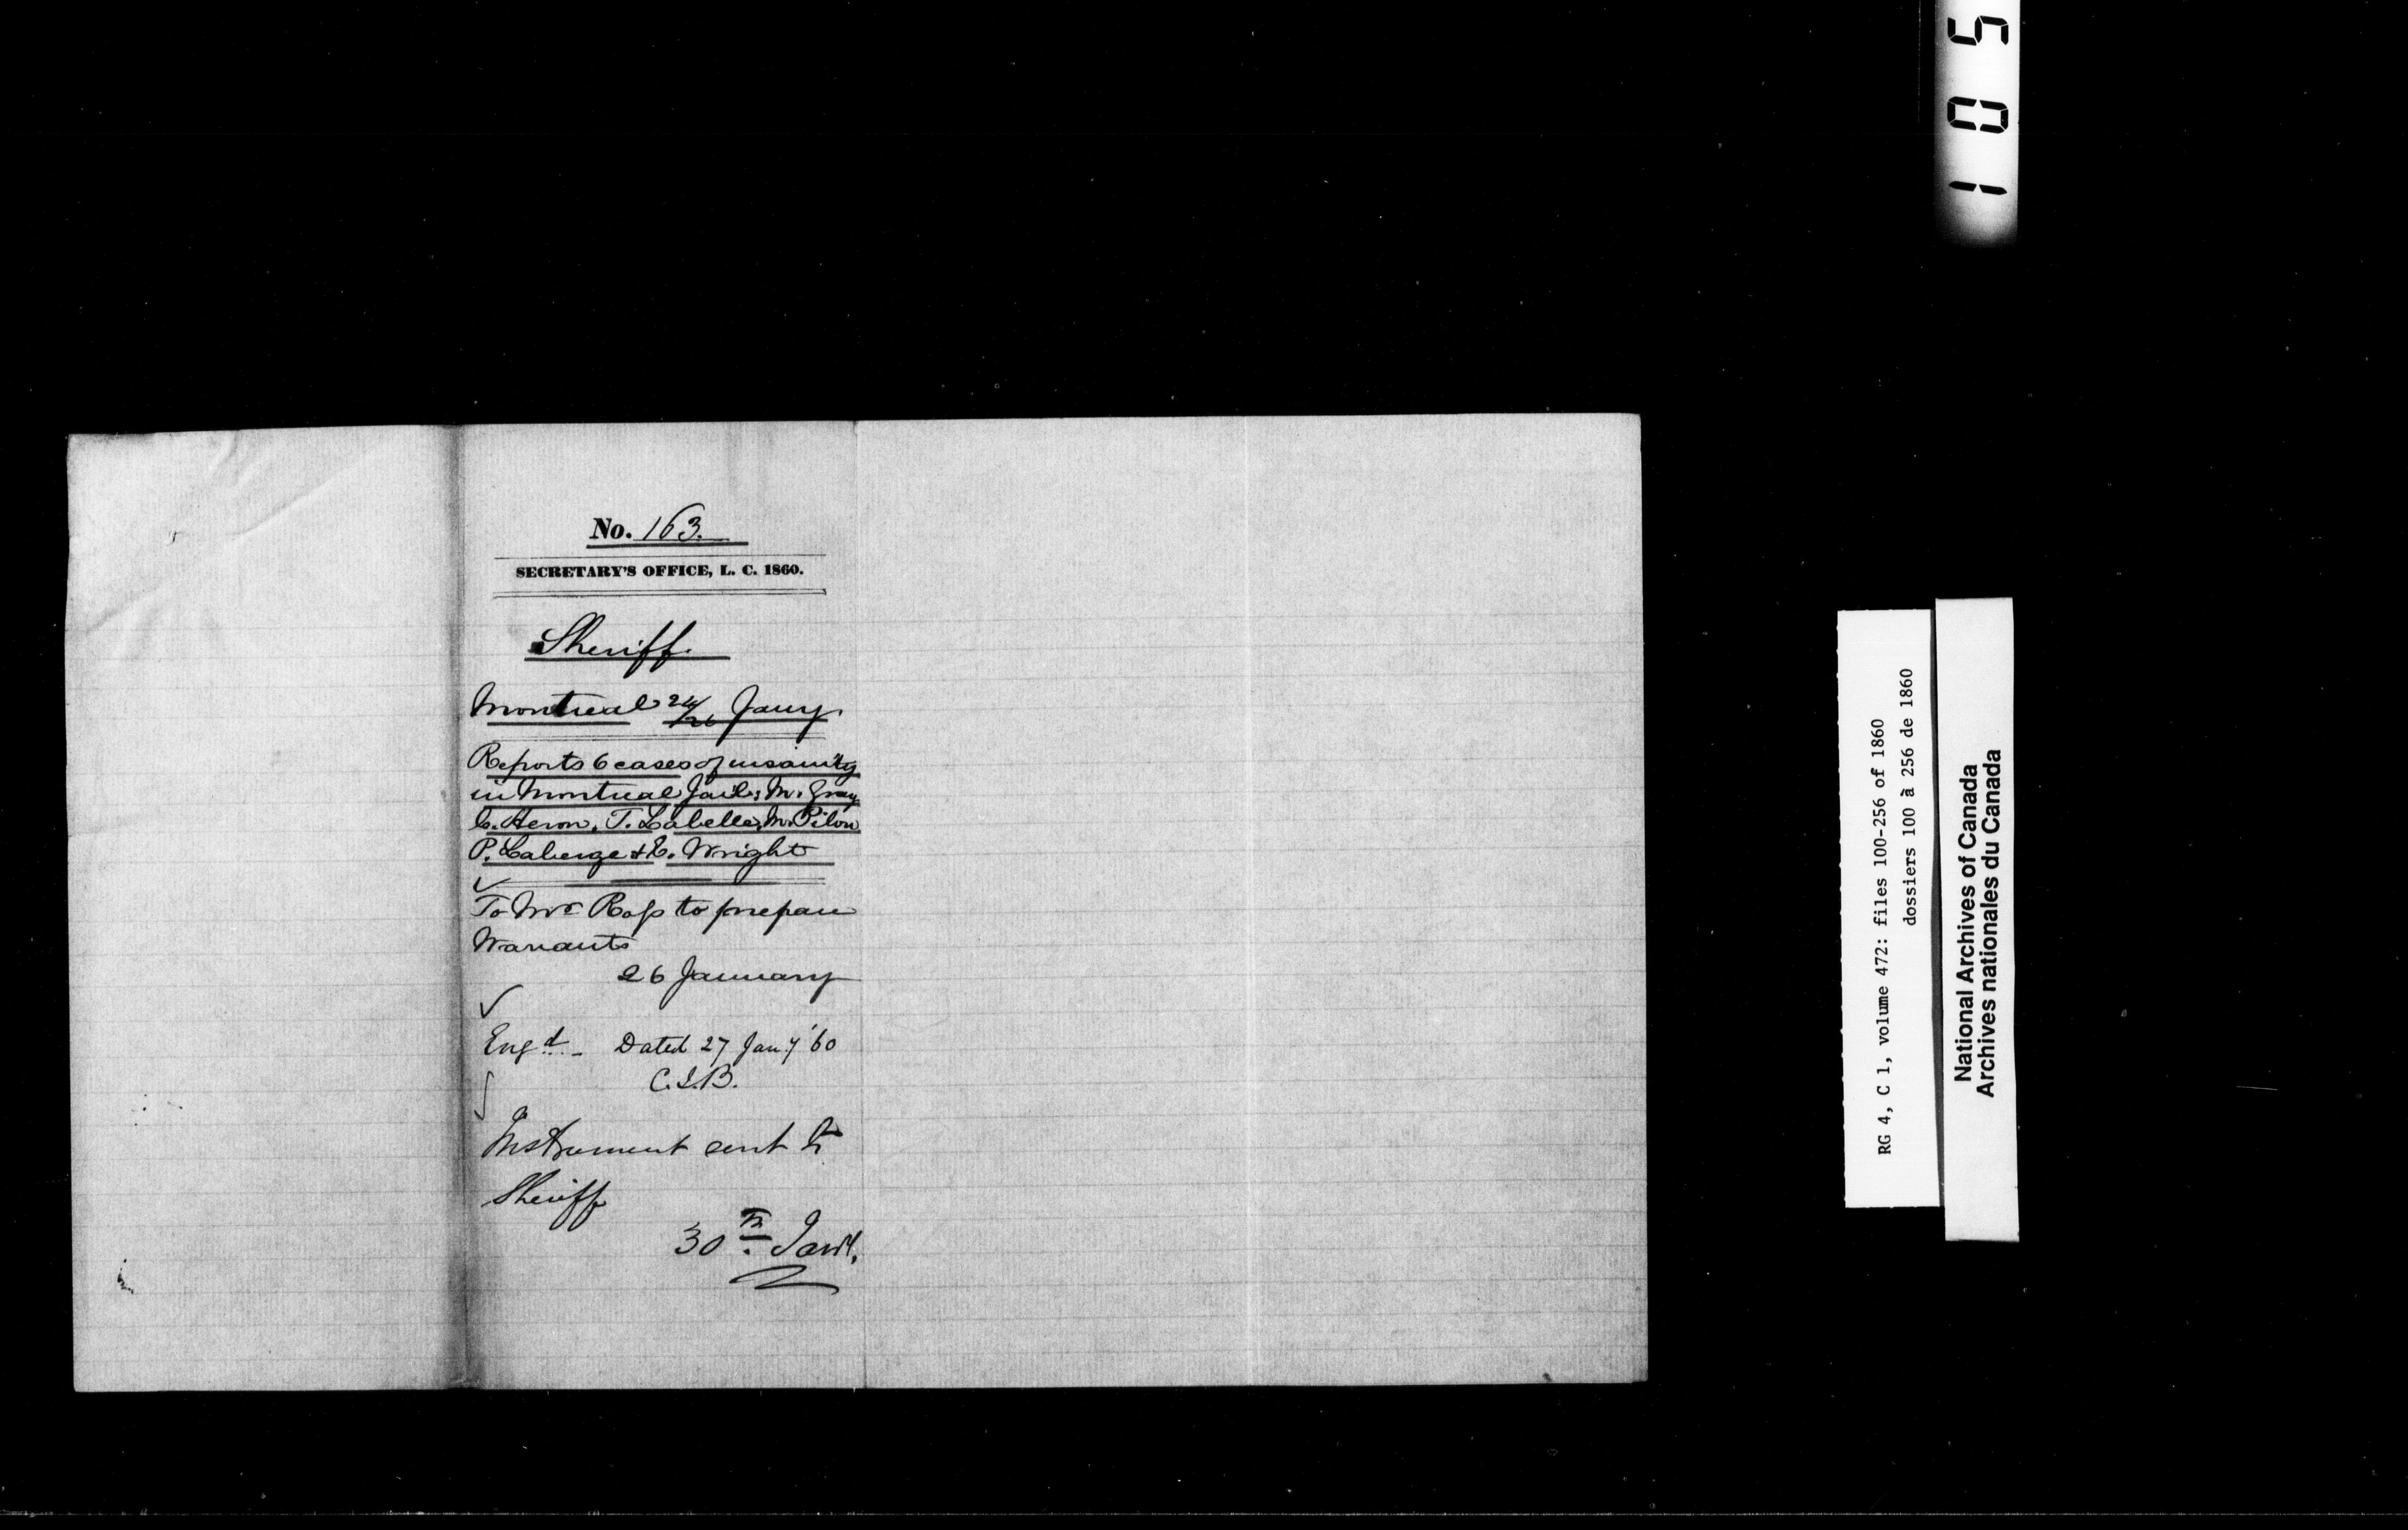 No. 163.
SECRETARY'S OFFICE, L. C. 1860.
Sheriff.
Montreal 24/26 Jany.
Reports 6 cases of insanity
in Montreal Jail: M. Gray
C. Heron, T. Labelle, M. Pilon
P. Laberge & E. Wright
To Mr Ross to prepare
Warrants
26 January
Engd. - Dated 27 Jany '60
Instrument sent to
Sheriff
30th. Jany.
105
RG 4, C 1, volume 472: files 100-256 of 1860
dossiers 100 à 256 de 1860
National Archives of Canada
Archives nationales du Canada